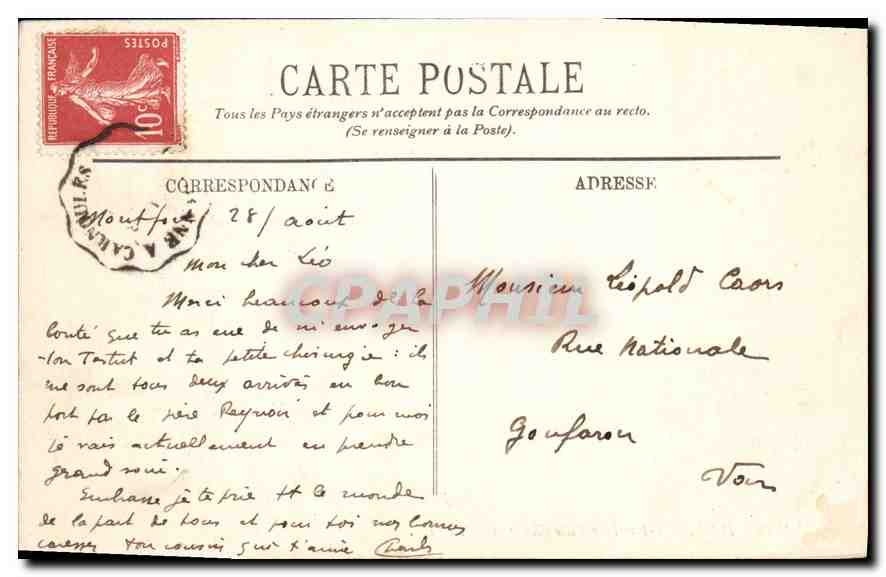 REPUBLIQUE FRANÇAISE
POSTES
10c
CARTE POSTALE
Tous les Pays étrangers n'acceptent pas la Correspondance au recto.
(Se renseigner à la Poste).
CORRESPONDANCE
A CARNOULES
Montfort 28/ août
Mon cher Léo
Merci beaucoup de la
bonté que tu as eue de m'envoyer
ton Testut et ta petite chirurgie : ils
me sont tous deux arrivés en bon
port par le père et pour moi
je vais actuellement en prendre
grand soin.
Embrasse je te prie tt le monde
de la part de tous et pour toi nos bonnes
caresses ton cousin qui t'aime Charles
ADRESSE
Monsieur Léopold Caors
Rue Nationale
Gonfaron
Var
CPAPHIL